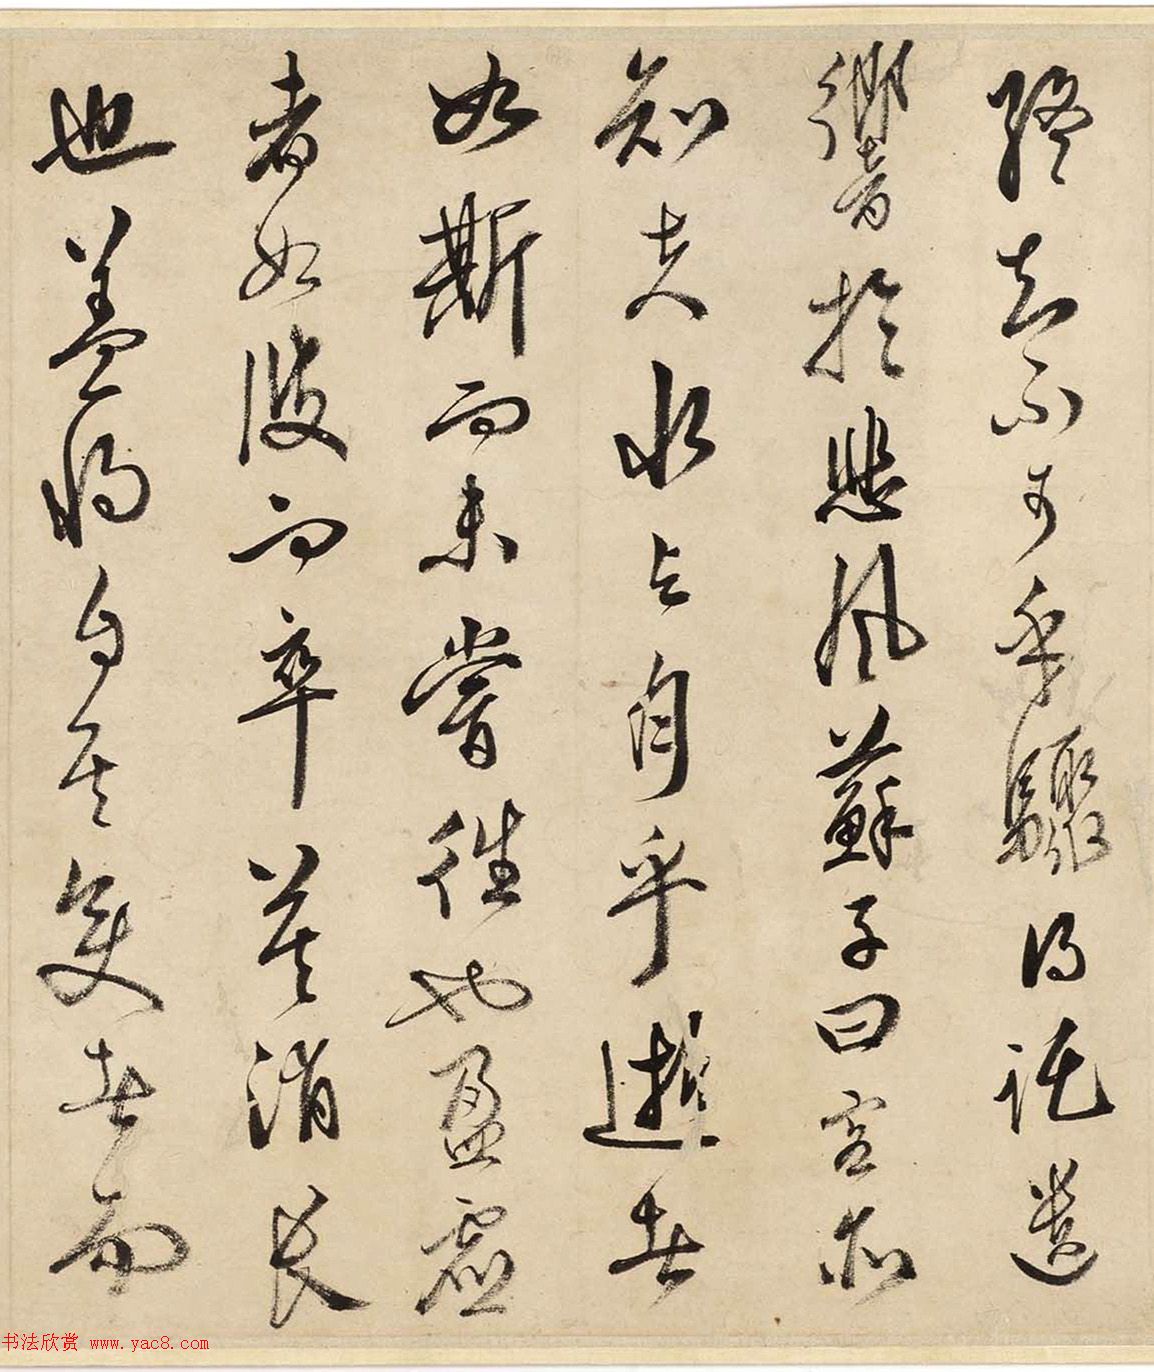 終知不可乎驟得託遺
響於悲風蘇子曰客亦
知夫水与月乎逝者
如斯而未嘗往也盈虛
者如彼而卒莫消長
也蓋將自其變者而
书法欣赏 www.yac8.com